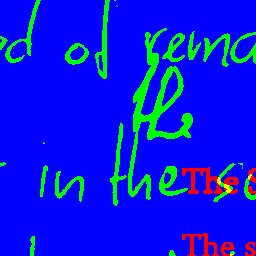 of rema
the
in the
The S
The s